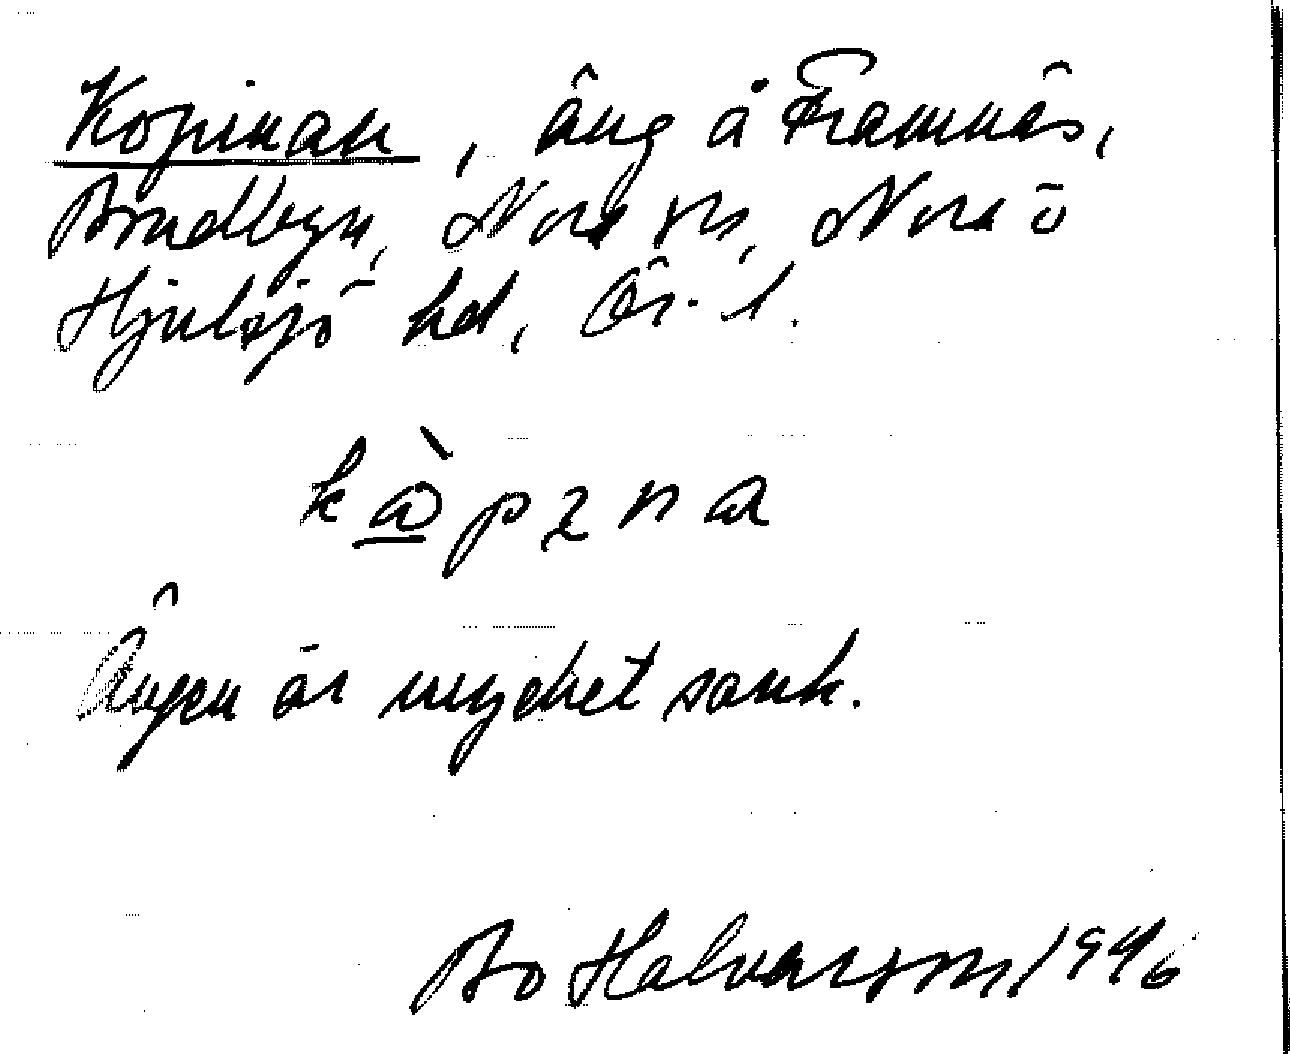 Kopinan, äng å Framnäs,
Bredbyn, Nora sn, Nora o
Hjulsjö hd, Ör. l.
kåpına
Ängen är mycket sank.
Bo Halvarson 1946